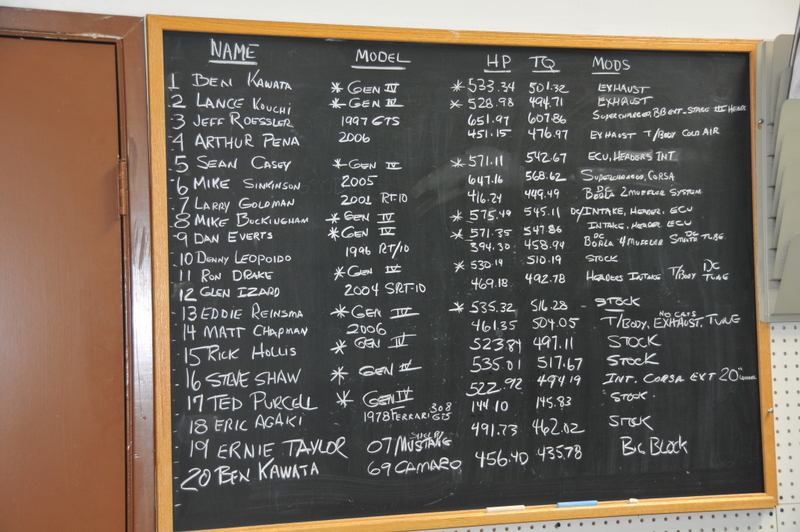 NAME MODEL HP TQ MODS
1 BEN KAWATA * GEN IV * 533.34 501.32 EXHAUST
2 LANCE KOUCHI * GEN IV * 528.98 494.71 EXHAUST
3 JEFF ROESSLER 1997 GTS 651.97 607.86 SUPERCHARGER, BB EXT - STAGE III HEADER
4 ARTHUR PENA 2006 451.15 476.97 EXHAUST T/BODY COLD AIR
5 SEAN CASEY * GEN IV * 571.11 542.67 ECU, HEADERS INT
6 MIKE SINKINSON 2005 647.16 568.62 SUPERCHARGED, CORSA
7 LARRY GOLDMAN 2001 RT-10 416.24 449.49 DC BORLA 2 MUFFLER SYSTEM
8 MIKE BUCKINGHAM * GEN IV * 575.49 545.11 INTAKE, HEADER, ECU
9 DAN EVERTS * GEN IV * 571.35 547.86 INTAKE, HEADER ECU
10 DENNY LEOPOLDO 1996 RT/10 394.30 458.94 DC BORLA 4 MUFFLER DC TUBE
11 RON DRAKE * GEN IV * 530.19 510.19 STOCK
12 GLEN IZARD 2004 SRT-10 469.18 492.78 HEADERS INTAKE T/BODY DC TUNE
13 EDDIE REINSMA * GEN IV * 535.32 516.28 STOCK
14 MATT CHAPMAN 2006 461.35 504.05 T/BODY, NO CATS EXHAUST, TUNE
15 RICK HOLLIS * GEN IV 523.84 497.11 STOCK
16 STEVE SHAW * GEN IV 535.01 517.67 STOCK
17 TED PURCELL * GEN IV 522.92 494.19 INT. CORSA EXT 20"
18 ERIC AGAKI 1978 FERRARI 308 GTS 144.10 145.83 STOCK
19 ERNIE TAYLOR 07 MUSTANG 491.73 462.02 STOCK
20 BEN KAWATA 69 CAMARO 456.40 435.78 BIG BLOCK